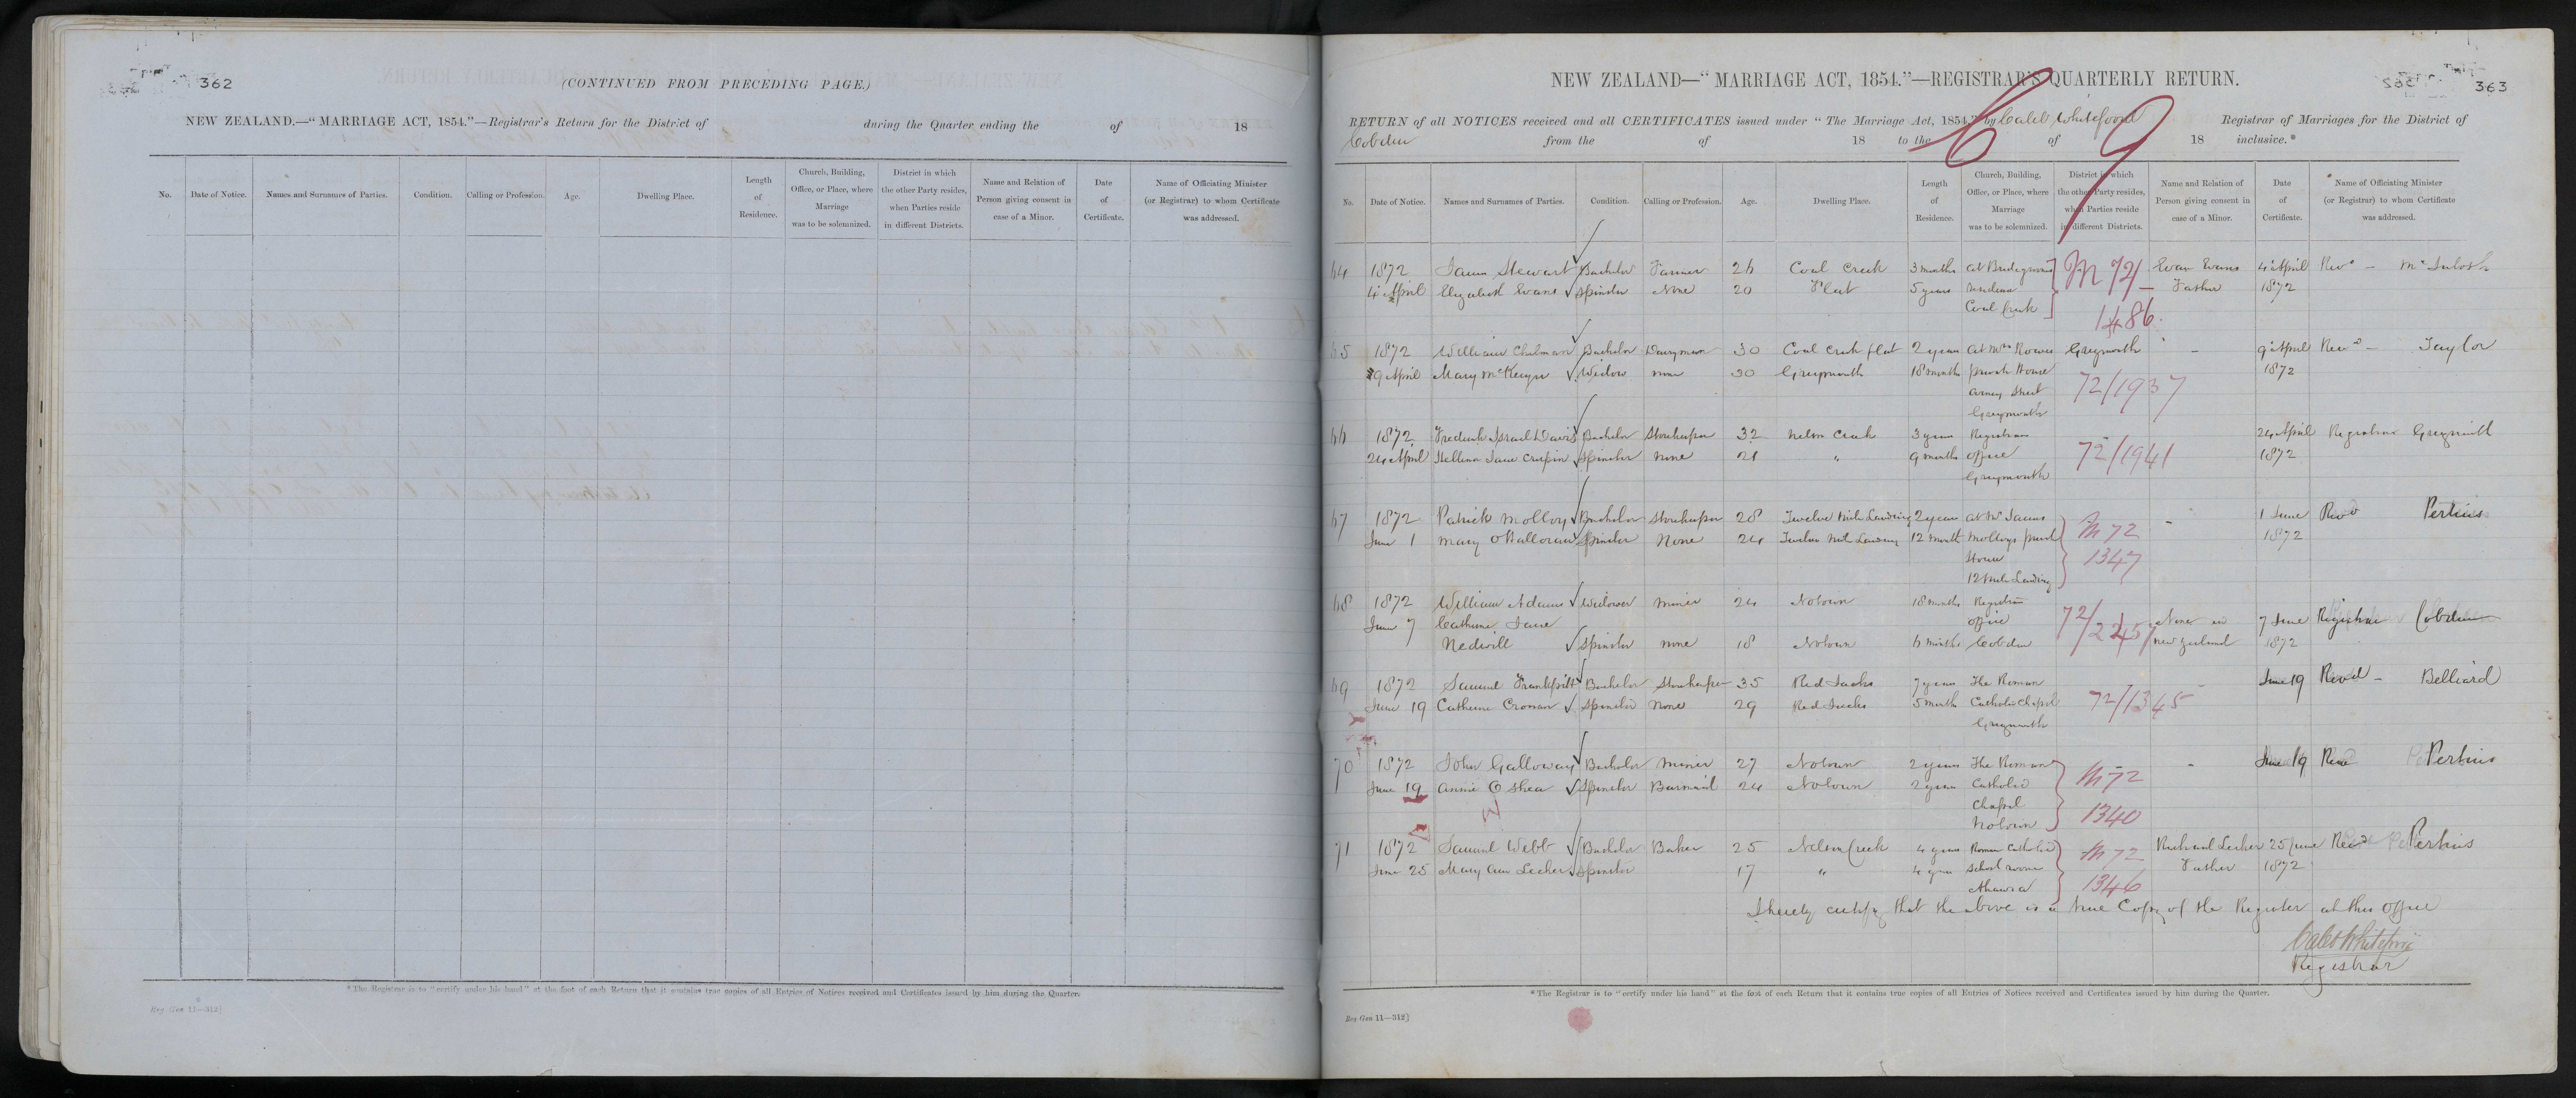 362
(CONTINUED FROM PRECEDING PAGE.)
NEW ZEALAND.—"MARRIAGE ACT, 1854."—Registrar's Return for the District of during the Quarter ending the of 18
No. Date of Notice. Names and Surnames of Parties. Condition. Calling or Profession. Age. Dwelling Place. Length of Residence. Church, Building, Office, or Place, where Marriage was to be solemnized. District in which the other Party resides, when Parties reside in different Districts. Name and Relation of Person giving consent in case of a Minor. Date of Certificate. Name of Officiating Minister (or Registrar) to whom Certificate was addressed.
*The Registrar is to "certify under his hand" at the foot of each Return that it contains true copies of all Entries of Notices received and Certificates issued by him during the Quarter.
Reg Gen 11—312]
363
NEW ZEALAND—"MARRIAGE ACT, 1854."—REGISTRAR'S QUARTERLY RETURN.
RETURN of all NOTICES received and all CERTIFICATES issued under "The Marriage Act, 1854," by Caleb Whitefoord Registrar of Marriages for the District of
Cobden from the of 18 to the of 18 inclusive.*
69
No. Date of Notice. Names and Surnames of Parties. Condition. Calling or Profession. Age. Dwelling Place. Length of Residence. Church, Building, Office, or Place, where Marriage was to be solemnized. District in which the other Party resides, when Parties reside in different Districts. Name and Relation of Person giving consent in case of a Minor. Date of Certificate. Name of Officiating Minister (or Registrar) to whom Certificate was addressed.
64 1872 James Stewart Bachelor Farmer 26 Coal Creek 3 months at Bridegrooms M 72 Evan Evans 4 April Revd —
4 April Elizabeth Evans Spinster None 20 Flat 5 years residence Father 1872
Coal Creek 1486
65 1872 William Bachelor Dairyman 30 Coal Creek flat 2 years at Mrs Greymouth - 9 April Revd — Taylor
9 April Mary Widow none 30 Greymouth 18 months private House 1872
Arney Street 72/1937
Greymouth
66 1872 Frederick Israel Davis Bachelor Storekeeper 32 Nelson Creek 3 years Registrars 24 April Registrar Greymouth
24 April Hellena Jane Crispin Spinster none 21 " 9 months office 72/1941 1872
Greymouth
67 1872 Patrick Molloy Bachelor Storekeeper 28 Twelve Mile Landing 2 years at Mr James M 72 - 1 June Revd Perkins
June 1 Mary O'Halloran Spinster None 24 Twelve Mile Landing 12 month Molloys private 1872
House 1347
12 Mile Landing
68 1872 William Adams Widower Miner 24 Notown 18 months Registrar 7 June Registrar Cobden
June 7 Catherine Jane office 72/2245 None in
Nedwill Spinster none 18 Notown 6 months Cobden New Zealand 1872
69 1872 Samuel Bachelor Storekeeper 35 Red Jacks 7 years The Roman - June 19 Revd — Belliard
June 19 Catherine Cronan Spinster None 29 Red Jacks 5 months Catholic Chapel 72/1345
Greymouth
70 1872 John Galloway Bachelor Miner 27 Notown 2 years The Roman M 72 - June 19 Revd Perkins
June 19 Annie O Shea Spinster Barmaid 24 Notown 2 years Catholic
Chapel 1340
Notown
71 1872 Samuel Webb Bachelor Baker 25 Nelson Creek 4 years Roman Catholic M 72 25 June Revd Perkins
June 25 Mary Ann Spinster 17 " 4 years School room Father 1872
Ahaura 1346
I hereby certify that the above is a true Copy of the Register at this office
Caleb Whitefoord
Registrar
*The Registrar is to "certify under his hand" at the foot of each Return that it contains true copies of all Entries of Notices received and Certificates issued by him during the Quarter.
Reg Gen 11—312]